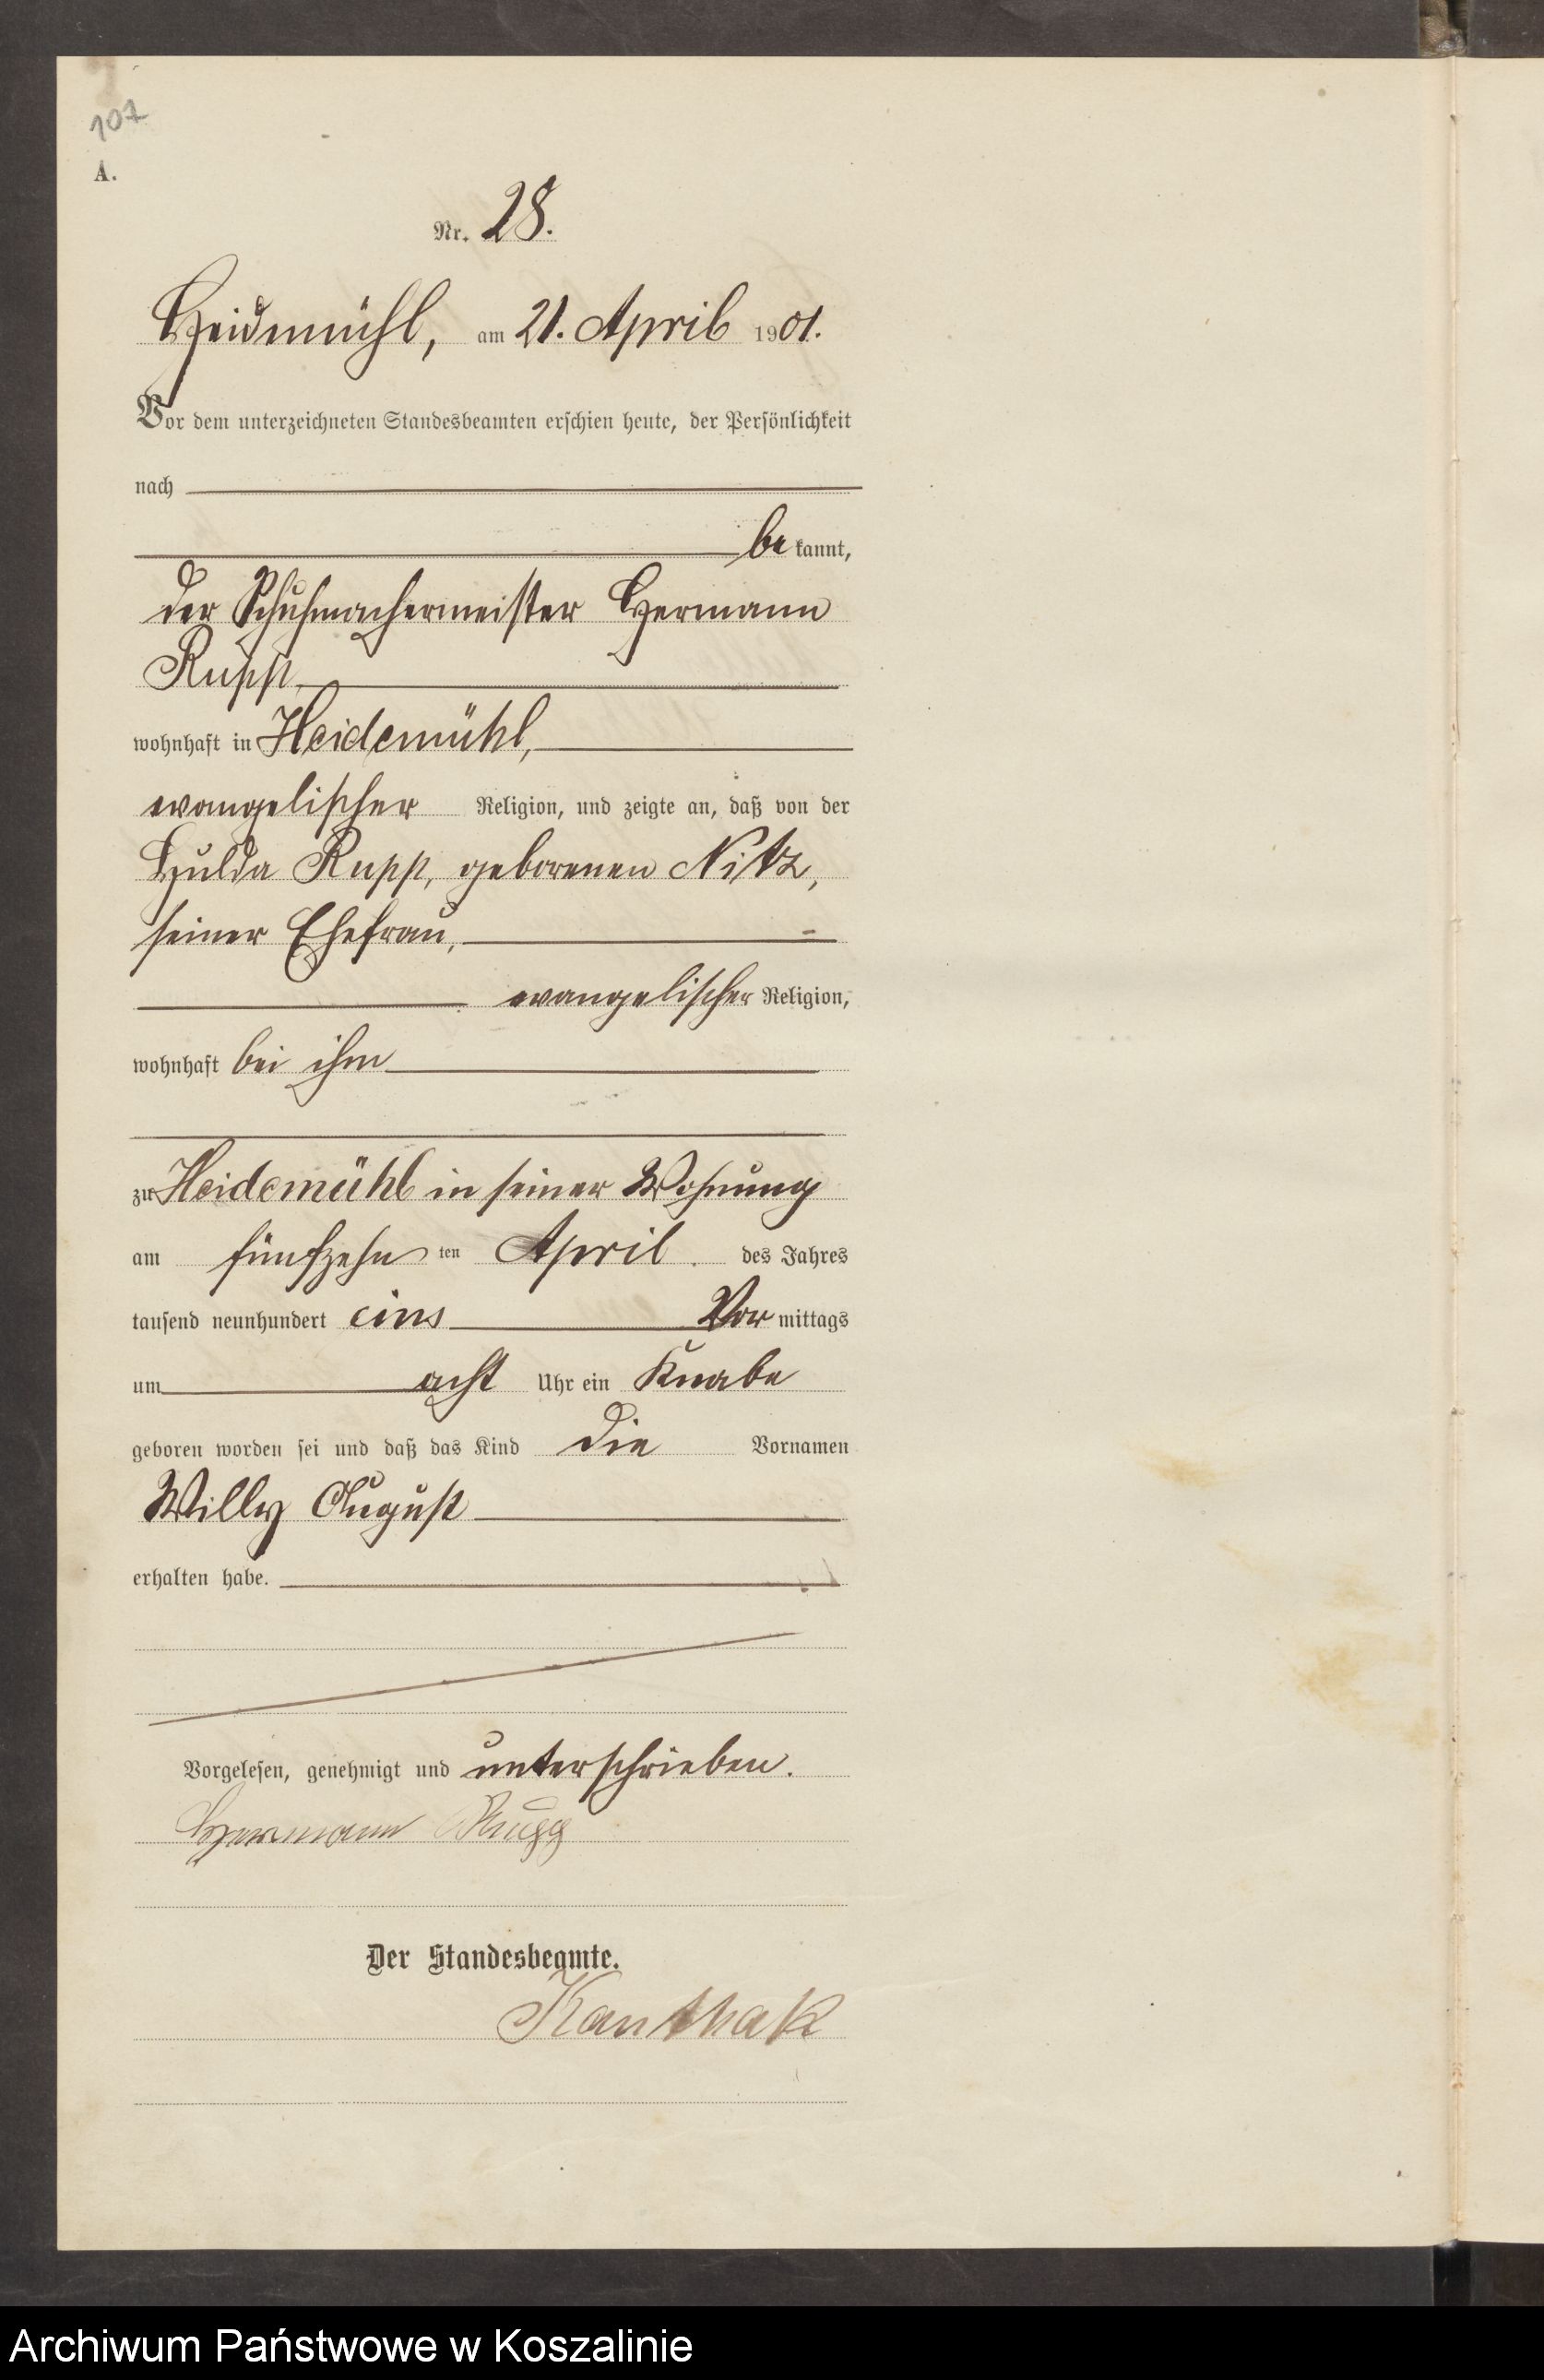 107
A.
Nr. 28.
Heidmühl, am 21. April 1901.
Vor dem unterzeichneten Standesbeamten erschien heute, der Persönlichkeit
nach
be kannt,
der Schuhmachermeister Hermann
Rupp,
wohnhaft in Heidemühl,
evangelischer Religion, und zeigte an, daß von der
Hulda Rupp, geborenen Nitz,
seiner Ehefrau,
evangelischer Religion,
wohnhaft bei ihm
zu Heidemühl in seiner Wohnung
am fünfzehn ten April des Jahres
tausend neunhundert eins Vor mittags
um acht Uhr ein Knabe
geboren worden sei und daß das Kind die Vornamen
Willy August
erhalten habe.
Vorgelesen, genehmigt und unterschrieben.
Hermann Rupp
Der Standesbeamte.
Kanthak
Archiwum Państwowe w Koszalinie